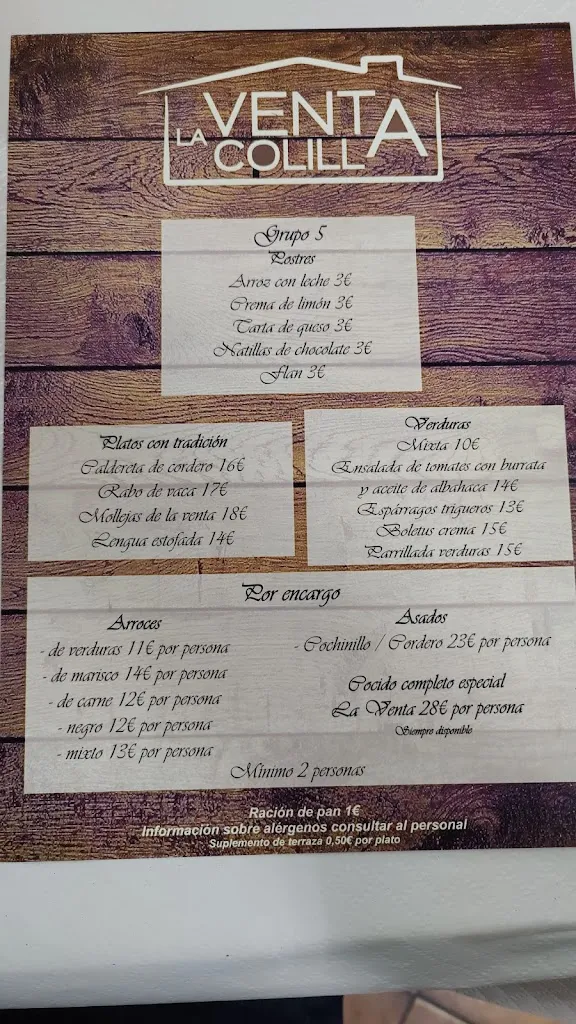 LA VENTA
COLILLA
Grupo 5
Postres
Arroz con leche 3€
Crema de limón 3€
Tarta de queso 3€
Natillas de chocolate 3€
Flan 3€
Platos con tradición
Caldereta de cordero 16€
Rabo de vaca 17€
Mollejas de la venta 18€
Lengua estofada 14€
Verduras
Mixta 10€
Ensalada de tomates con burrata
y aceite de albahaca 14€
Espárragos trigueros 13€
Boletus crema 15€
Parrillada verduras 15€
Por encargo
Arroces
- de verduras 11€ por persona
- de marisco 14€ por persona
- de carne 12€ por persona
- negro 12€ por persona
- mixto 13€ por persona
Asados
- Cochinillo / Cordero 23€ por persona
Cocido completo especial
La Venta 28€ por persona
Siempre disponible
Mínimo 2 personas
Ración de pan 1€
Información sobre alérgenos consultar al personal
Suplemento de terraza 0,50€ por plato